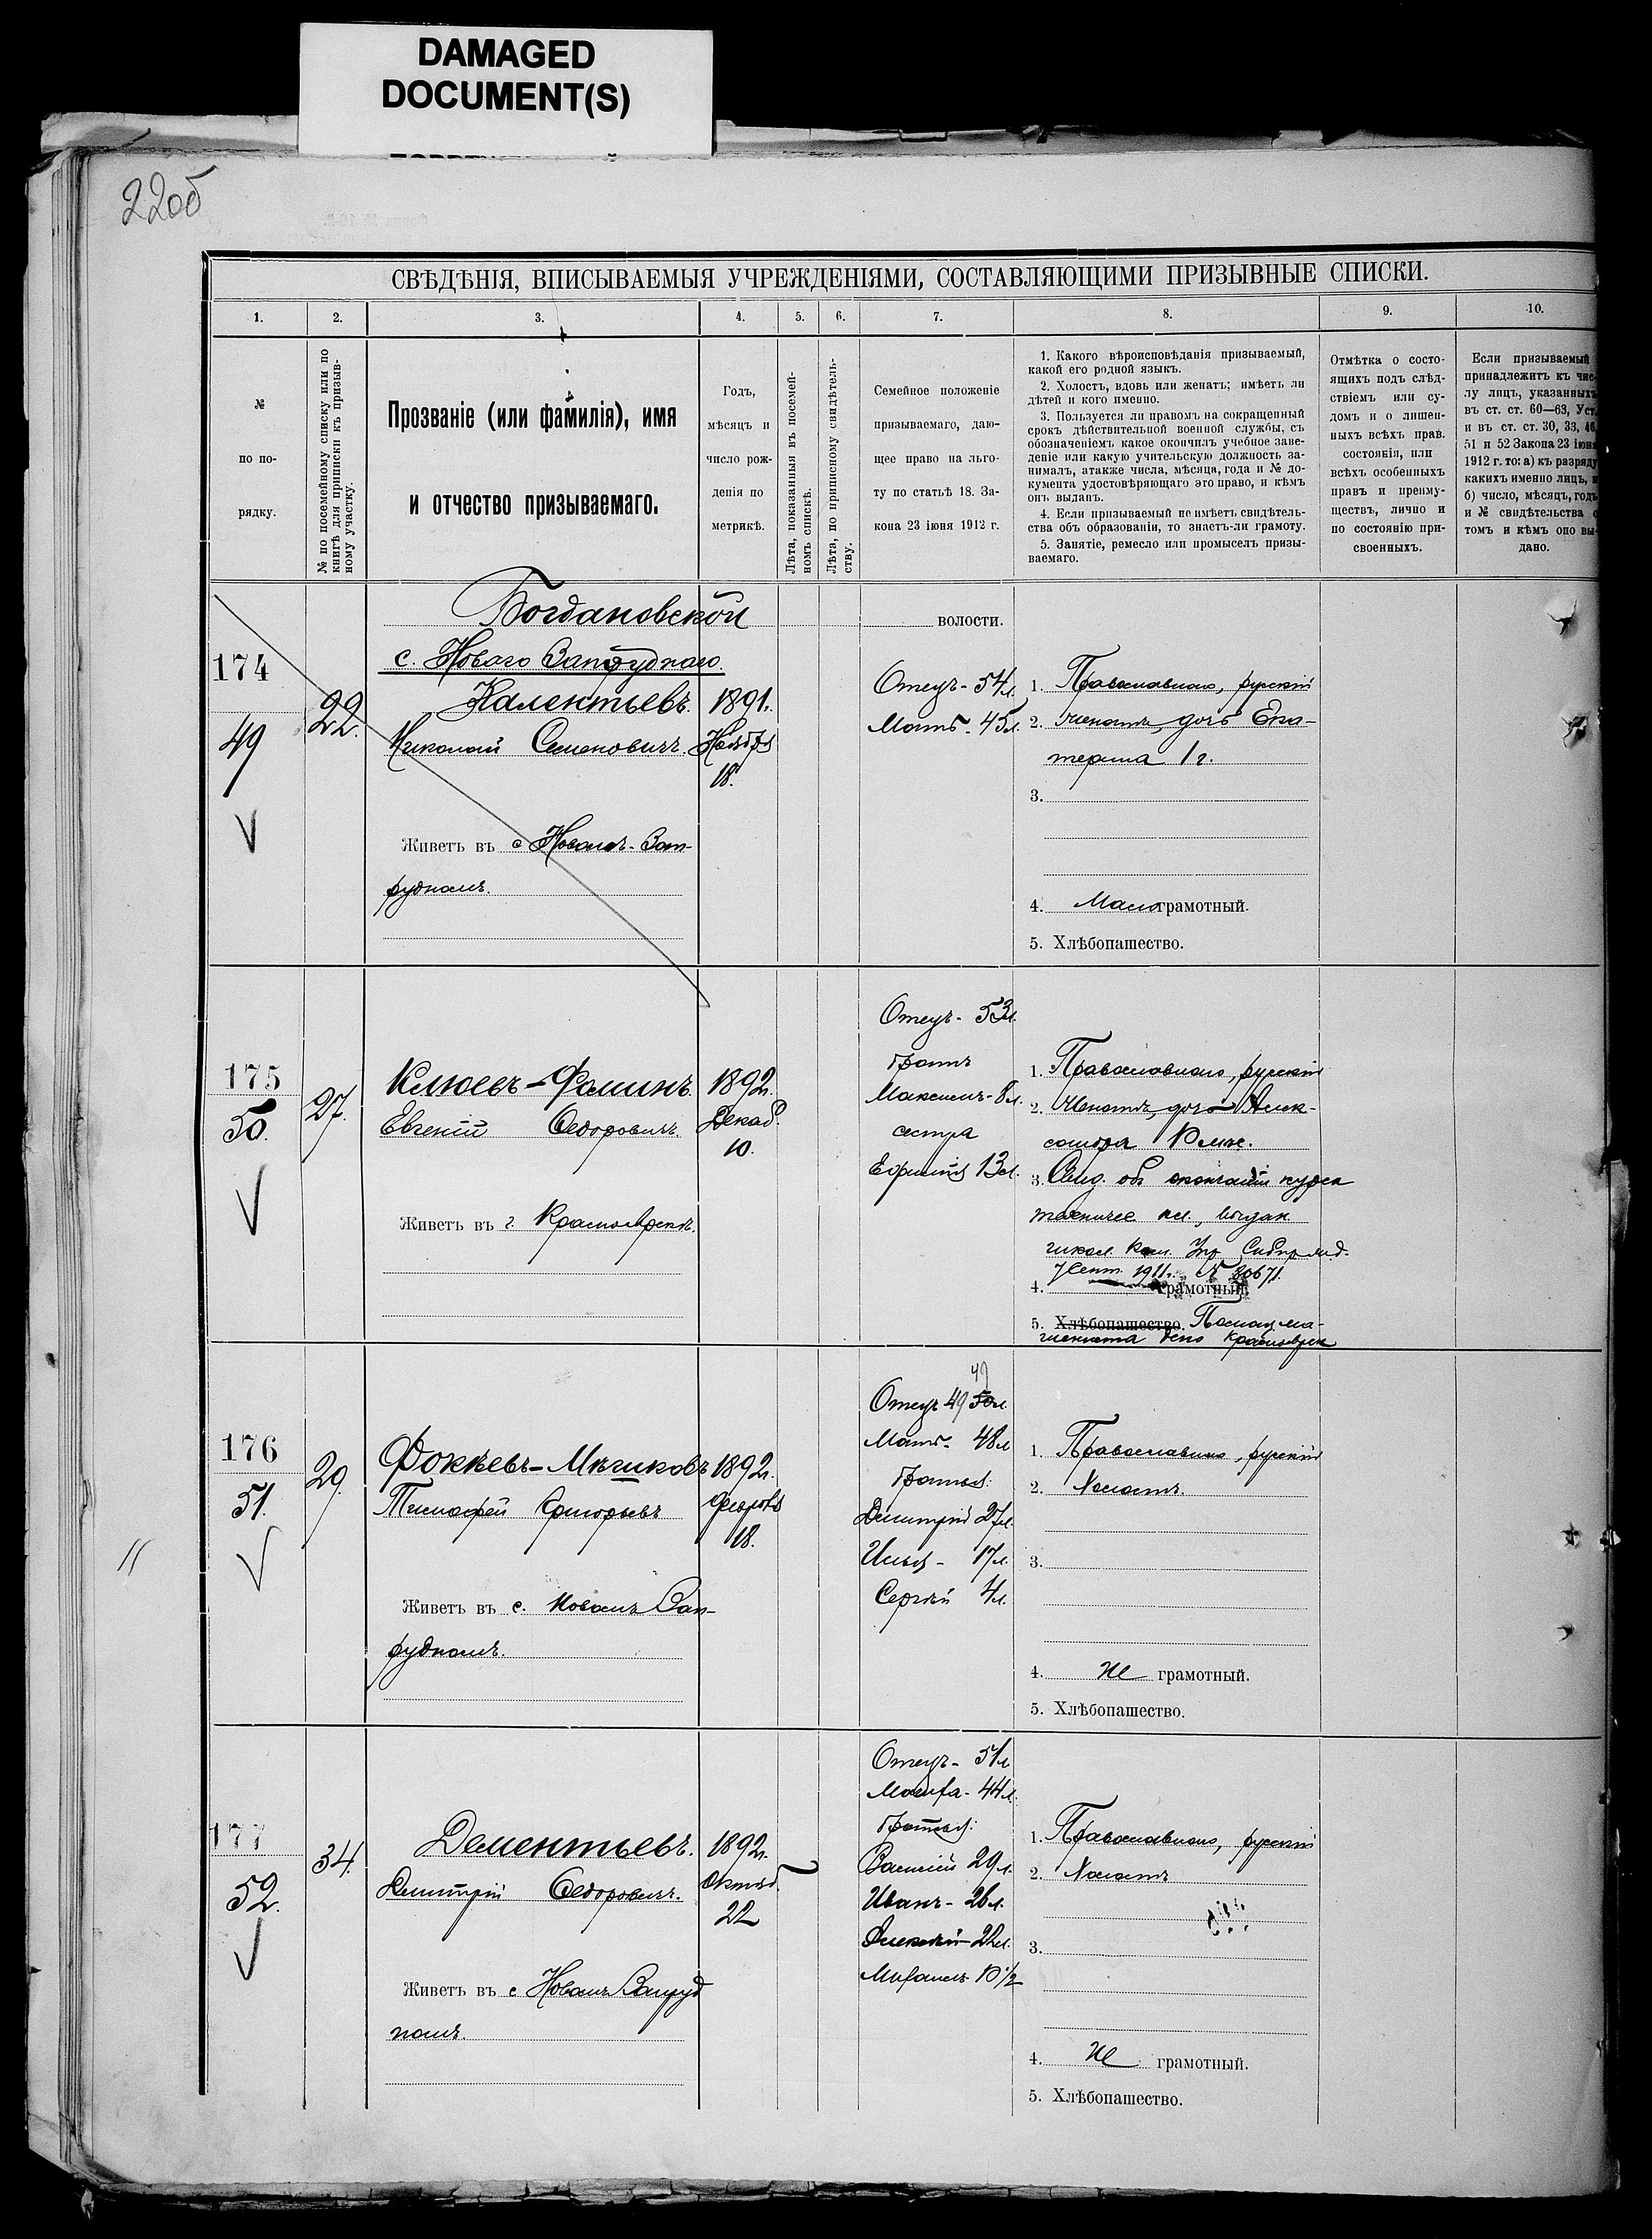 DAMAGED
DOCUMENT(S)
22об
СВѢДѢНІЯ, ВПИСЫВАЕМЫЯ УЧРЕЖДЕНІЯМИ, СОСТАВЛЯЮЩИМИ ПРИЗЫВНЫЕ СПИСКИ.
1.
2.
3.
4.
5.
6.
7.
8.
9.
10.
№
по по-
рядку.
№ по посемейному списку или по
книгѣ для приписки къ призыв-
ному участку.
Прозваніе (или фамилія), имя
и отчество призываемаго.
Годъ,
мѣсяцъ и
число рож-
денія по
метрикѣ.
Лѣта, показанныя въ посемей-
номъ спискѣ.
Лѣта, по приписному свидѣтель-
ству.
Семейное положеніе
призываемаго, даю-
щее право на льго-
ту по статьѣ 18. За-
кона 23 іюня 1912 г.
1. Какого вѣроисповѣданія призываемый,
какой его родной языкъ.
2. Холостъ, вдовъ или женатъ; имѣетъ ли
дѣтей и кого именно.
3. Пользуется ли правомъ на сокращенный
срокъ дѣйствительной военной службы, съ
обозначеніемъ какое окончилъ учебное заве-
деніе или какую учительскую должность за-
нималъ, атакже числа, мѣсяца, года и № до-
кумента удостовѣряющаго это право, и кѣмъ
онъ выданъ.
4. Если призываемый не имѣетъ свидѣтель-
ства объ образованіи, то знаетъ-ли грамоту.
5. Занятіе, ремесло или промыселъ призы-
ваемаго.
Отмѣтка о состо-
ящихъ подъ слѣд-
ствіемъ или су-
домъ и о лишен-
ныхъ всѣхъ прав.
состоянія, или
всѣхъ особенныхъ
правъ и преиму-
ществъ, лично и
по состоянію при-
своенныхъ.
Если призываемый
принадлежитъ къ чис-
лу лицъ, указанныхъ
въ ст. ст. 60—63, Уст.
и въ ст. ст. 30, 33, 46,
51 и 52 Закона 23 іюня
1912 г. то: а) къ разряду
какихъ именно лицъ, и
б) число, мѣсяцъ, годъ
и № свидѣтельства о
томъ и кѣмъ оно вы-
дано.
Богдановской волости.
с. Новаго Запруднаго.
174
49
22.
Калентьевъ.
Николай Семеновичъ.
Живетъ въ с Новомъ-Зап-
рудномъ.
1891г.
Ноября
18.
Отецъ - 54л.
Мать - 45л.
1. Православнаго, русскій
2. Женатъ, дочь Ека-
терина 1 г.
3.
4. Малограмотный.
5. Хлѣбопашество.
175
50.
27.
Клюевъ-Фоминъ.
Евгеній Ѳедоровичъ.
Живетъ въ г. Красноярскѣ.
1892г.
Декаб.
10.
Отецъ - 53л.
братъ
Максимъ - 8л.
сестра
13л.
1. Православнаго, русскій
2. Женатъ, дочь Алек-
сандра
3. Свид. объ окончаніи курса
выдан
Сент. 1911г. №
4. грамотный.
5. Хлѣбопашество.
депо Красноярск
176
51.
29.
Фокѣевъ-Мѣшковъ
Тимофей Григорьевъ
Живетъ въ с. Новомъ Зап-
рудномъ.
1892г.
Февраля
18.
49
Отецъ 49 50л.
Мать - 48л
братья:
Димитрій 27л.
Илья - 17л.
Сергѣй 4л.
1. Православнаго, русскій
2. Холостъ.
3.
4. не грамотный.
5. Хлѣбопашество.
11
177
52.
34.
Дементьевъ.
Димитрій Ѳедоровичъ.
Живетъ въ с Новомъ Запруд
номъ.
1892г.
Октяб.
22
Отецъ - 51л
44л.
братья:
Василій 29л.
Иванъ - 26л.
Алексѣй - 22л.
Михаилъ
1. Православнаго, русскій
2. Холостъ
3.
4. не грамотный.
5. Хлѣбопашество.